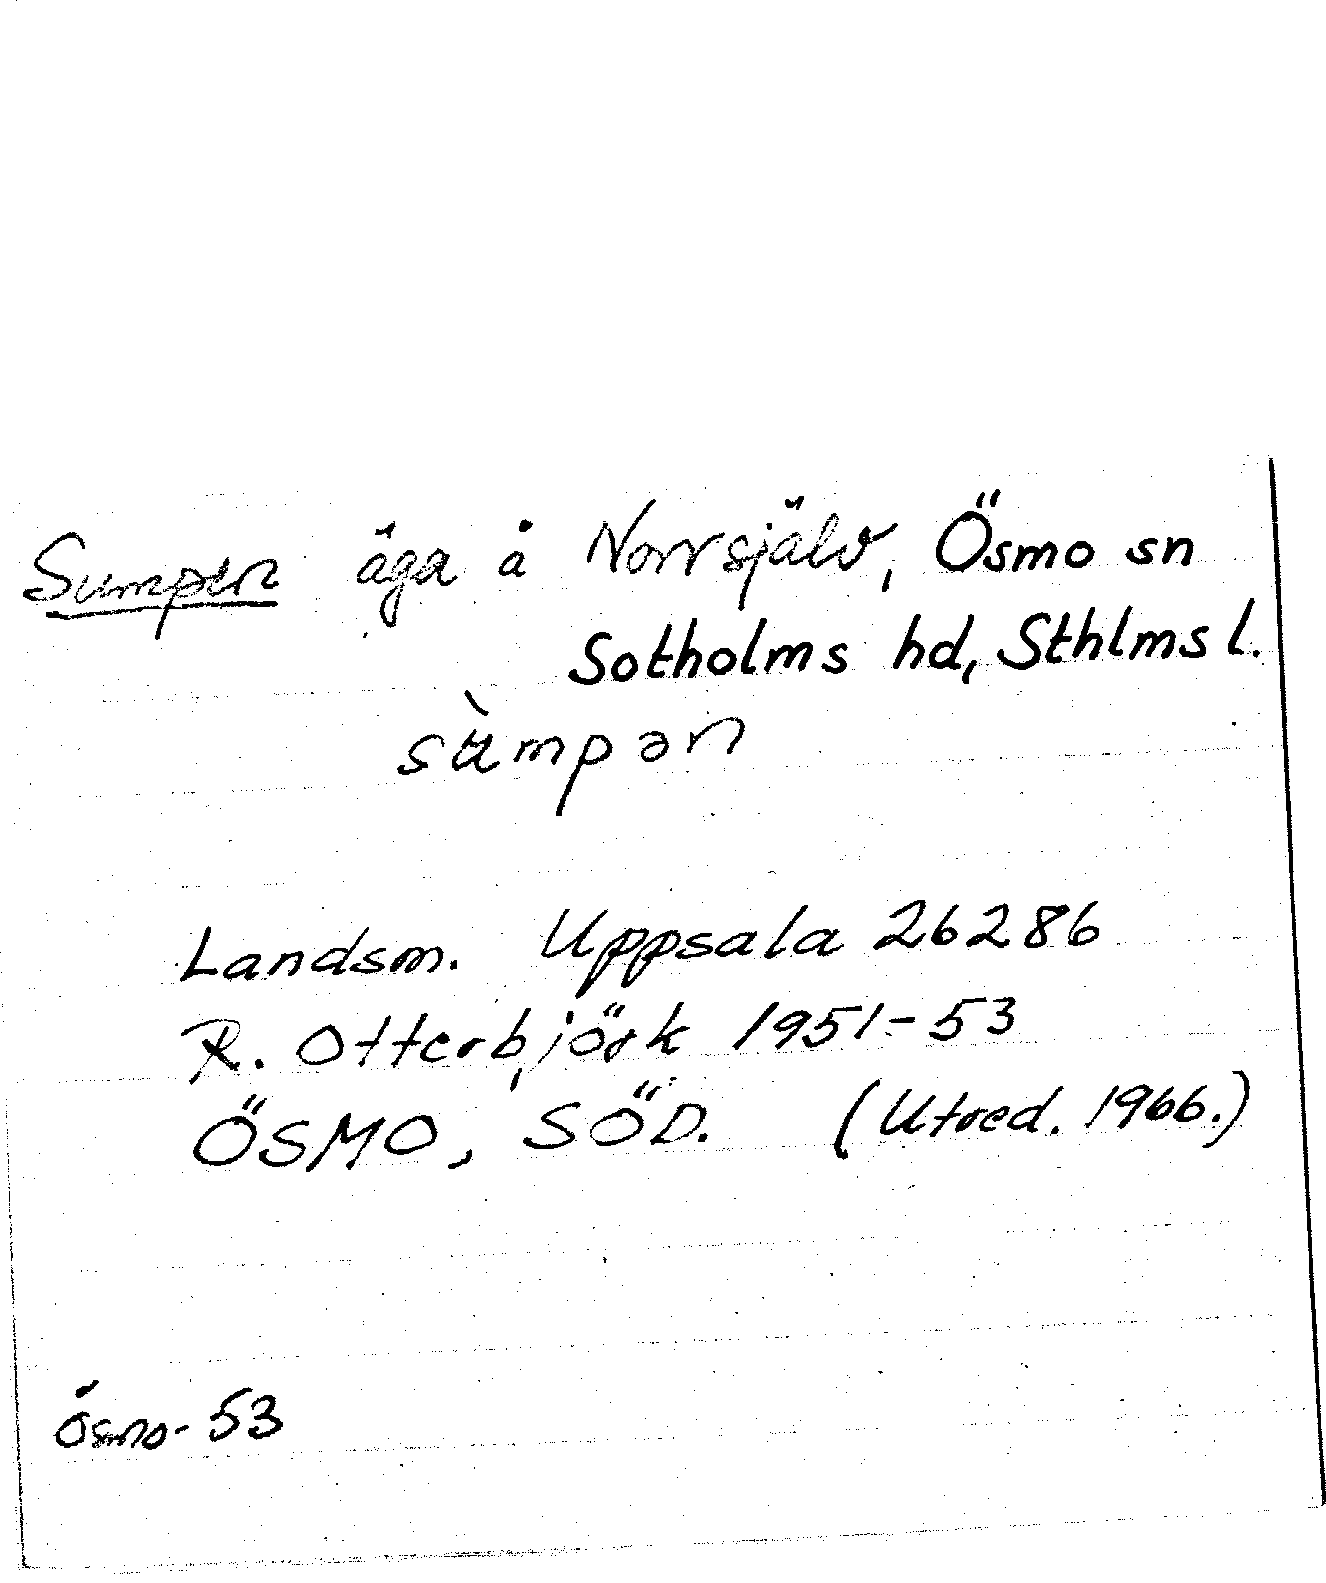 Sumpen äga å Norrsjälv, Ösmo sn
Sotholms hd, Sthlms l.
sùmpən
Landsm. Uppsala 26286
R. Otterbjörk 1951-53
ÖSMO, SÖD. (Utred. 1966.)
Ösmo-53